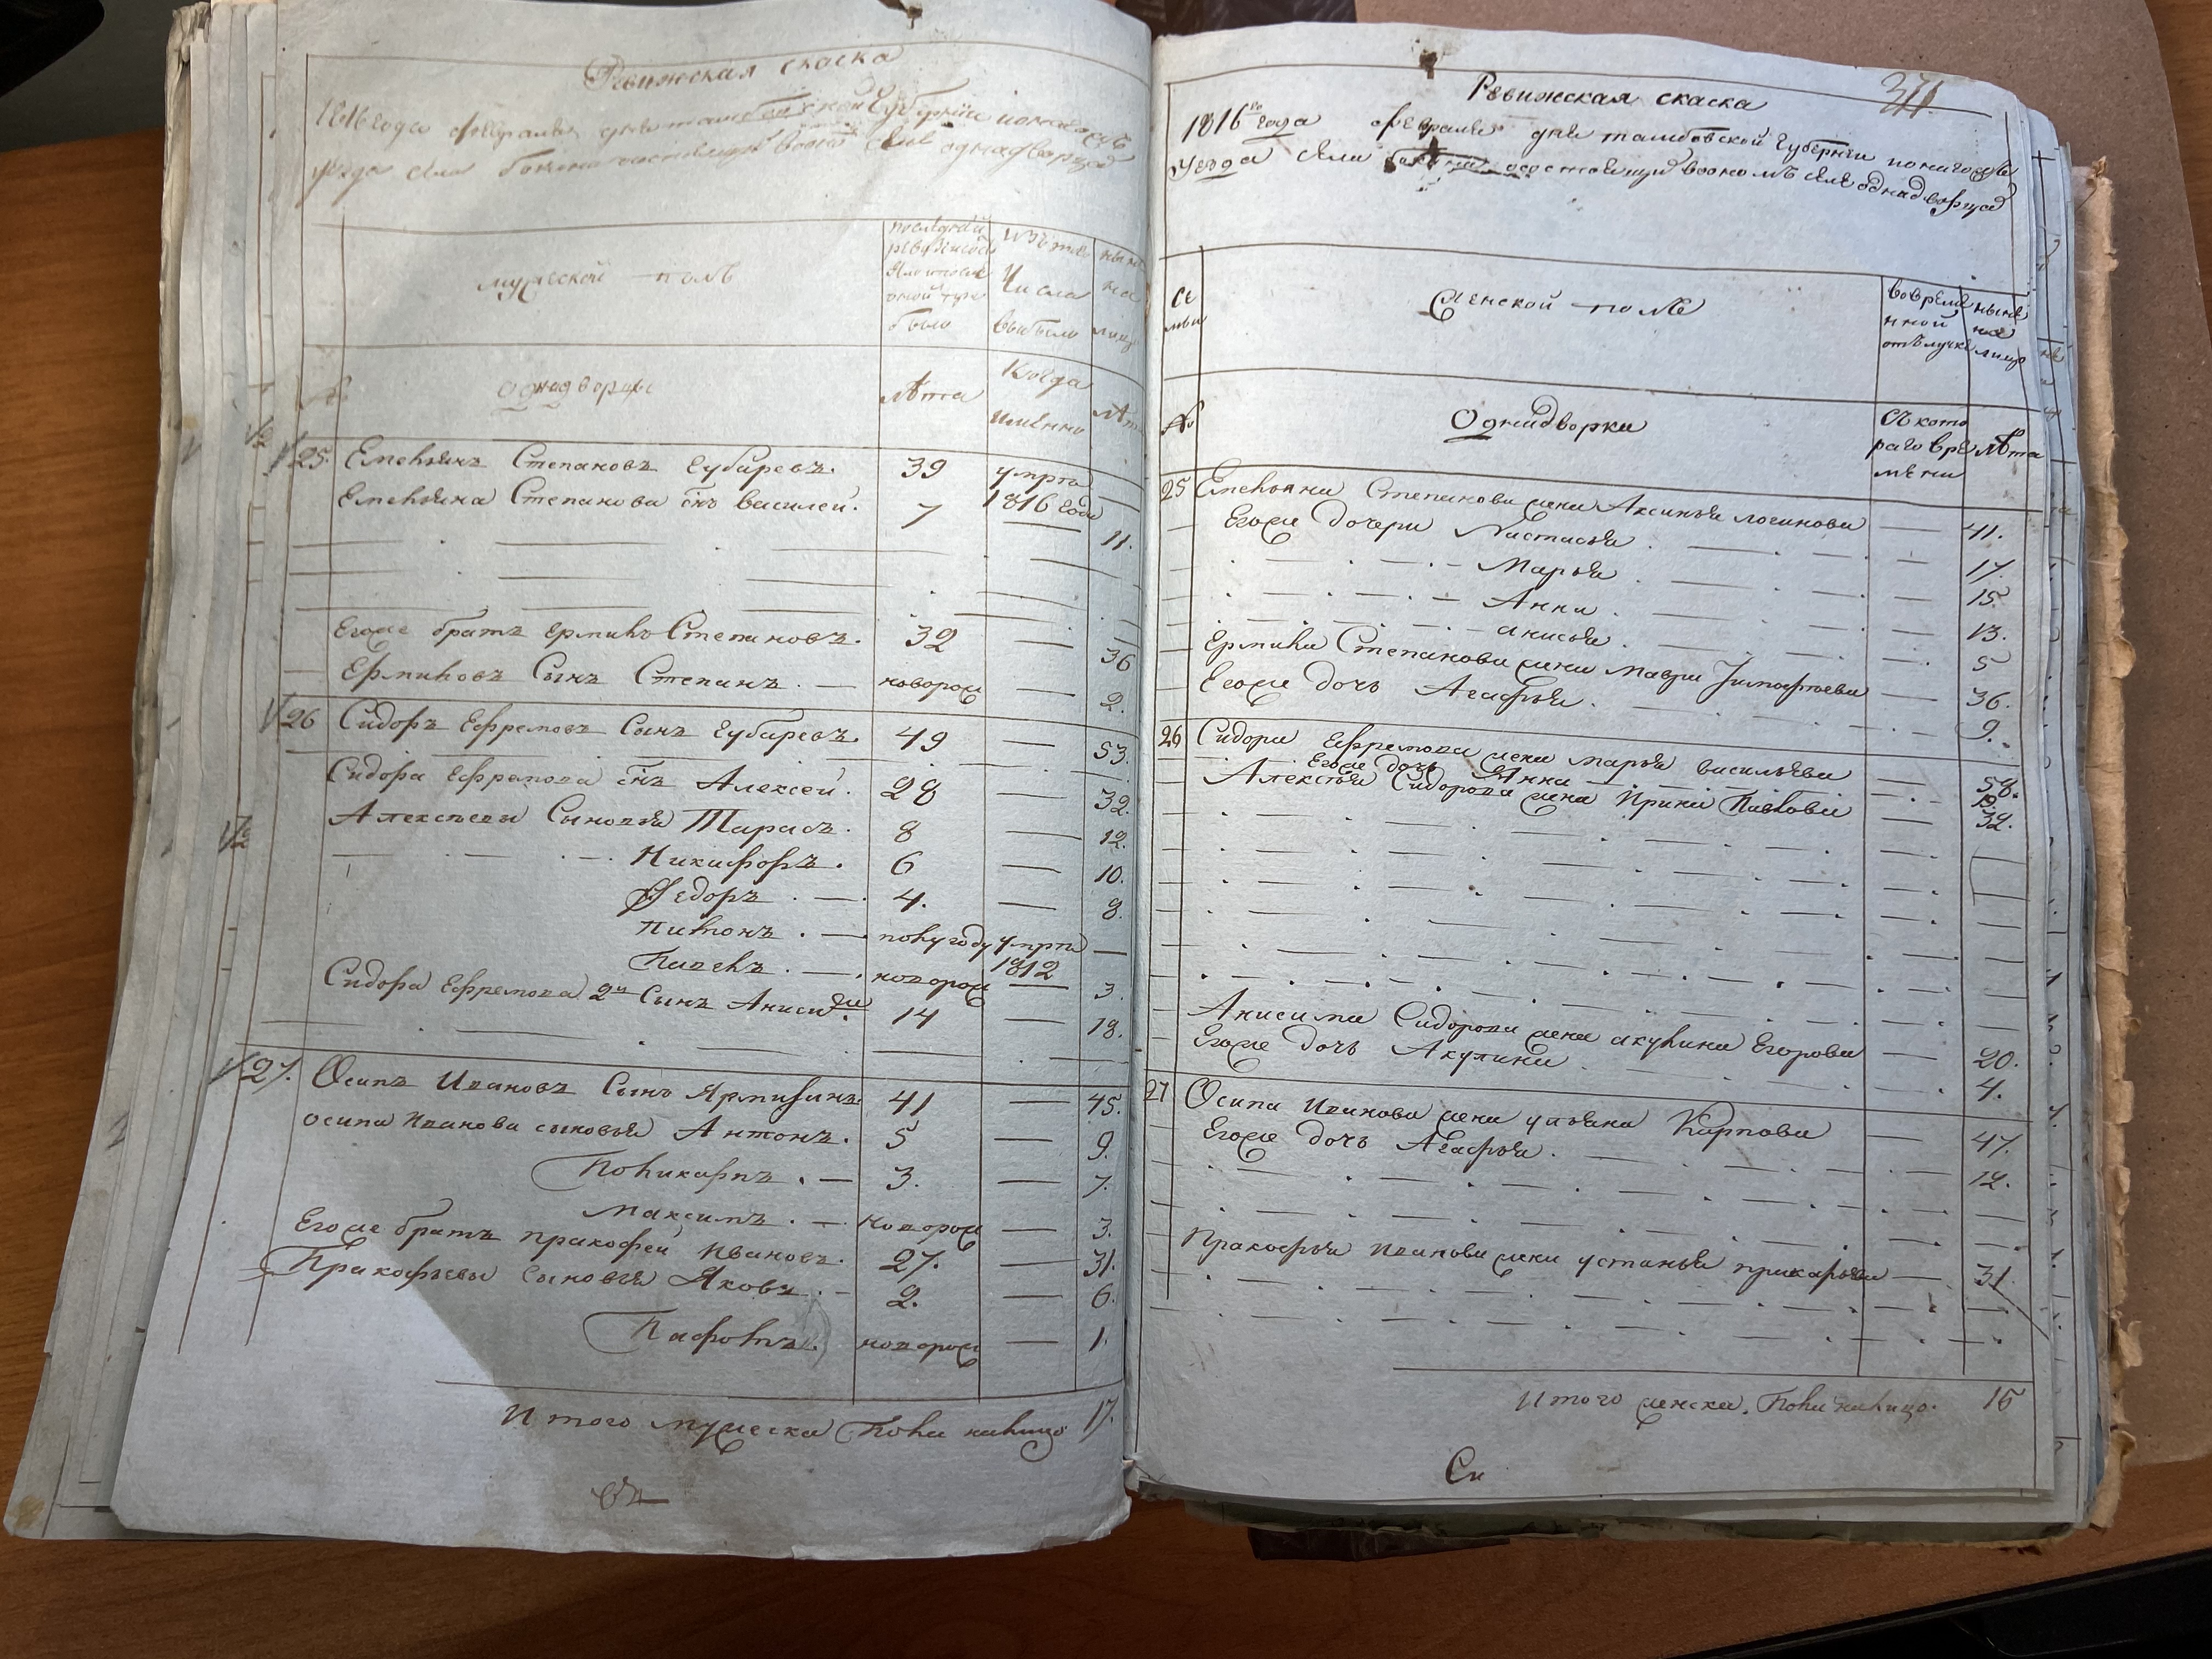 Ревижская скаска
1816 года февраля дня тамбовской Губернии
уезда села однадворцов
мужеской полъ
последней
ревизиï
было
изъ того
Числа
выбыло
ныне
на
лицо
№
Однадворцы
лѣта
Когда
имѣнно
лѣта
25. Емельянъ Степановъ Губаревъ. 39 умръ
Емельяна Степанова снъ василей. 7 1816 года
11.
Егоже братъ ермилъ Степановъ. 32 — 36
Ермиловъ Сынъ Степанъ. — новорож — 2.
26 Сидоръ Ефремовъ Сынъ Губаревъ. 49 — 53.
Сидора Ефремова снъ Алексей. 28 — 32.
Алексѣевы Сыновья Тарасъ. 8 — 12.
Никифоръ. 6 — 10.
Федоръ. — 4. — 8.
Антонъ. — полугоду умръ —
Павелъ. — новорож 1812 — 3.
Сидора Ефремова 2й Сынъ Анисим. 14 — 18.
27. Осипъ Ивановъ Сынъ 41 — 45.
осипа Иванова сыновья Антонъ. 5 — 9.
Поликарпъ. — 3. — 7.
Максимъ. — новорож — 3.
Егоже братъ пракофей Ивановъ. 27. — 31.
Пракофьевы сыновья Яковъ. — 2. — 6.
новорож — 1.
Итого мужеска Пола налицо 17.
Ревижская скаска
371
1816го года февраля дня тамбовской Губернии
уезда села состоящих воономъ селе однадворцов
се
мьи
Женской полъ
вовремя
нной
отълучке
ныне
на
лицо
№
Однадворки
Съкото
раго вре
мѣни
лѣта
25 Емельяна Степанова жена Аксинья логинова — 41.
Егоже дочери Настасья. 17.
Марья. 15.
Анна. 13.
анисья. 5
Ермила Степанова жена мавра Тимофѣева — 36.
Егоже дочь Агафья. 9.
26 Сидора Ефремова жена марья васильева — 58.
Егоже дочь Анна
Алексѣя Сидорова жена Ирина Павлова 32.
Анисима Сидорова жена акулина Егорова — 20.
Егоже дочь Акулина 4.
27 Осипа Иванова жена ульяна Карпова — 47.
Егоже дочь Агафья. 12.
Пракофья Иванова жена устинья — 31
Итого женска Пола налицо. 16
Ск